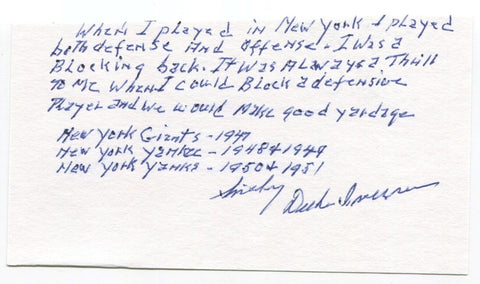 When I played in New York I played
both defense And offense. I was a
Blocking back. It was Always a Thrill
to me when I could Block a defensive
Player and we would make good yardage
New York Giants - 1947
New York Yankee - 1948 & 1949
New York Yanks - 1950 & 1951
Sincerely